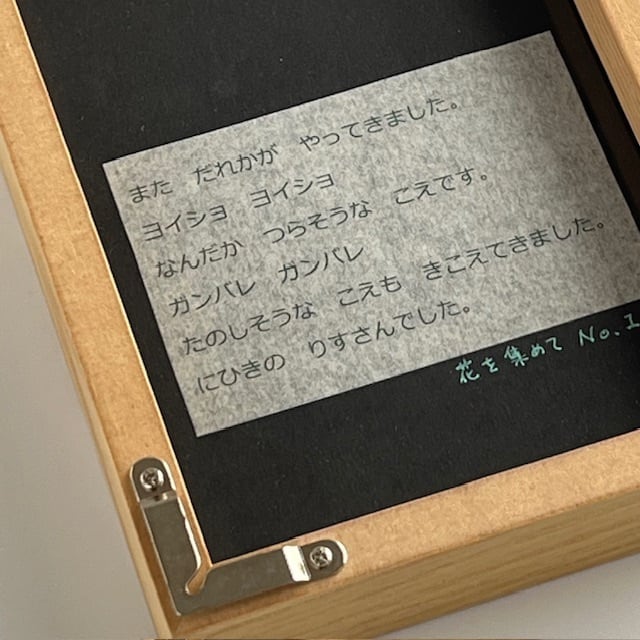 また　だれかが　やってきました。
ヨイショ　ヨイショ
なんだか　つらそうな　こえです。
ガンバレ　ガンバレ
たのしそうな　こえも　きこえてきました。
にひきの　りすさんでした。
花を集めて No.1